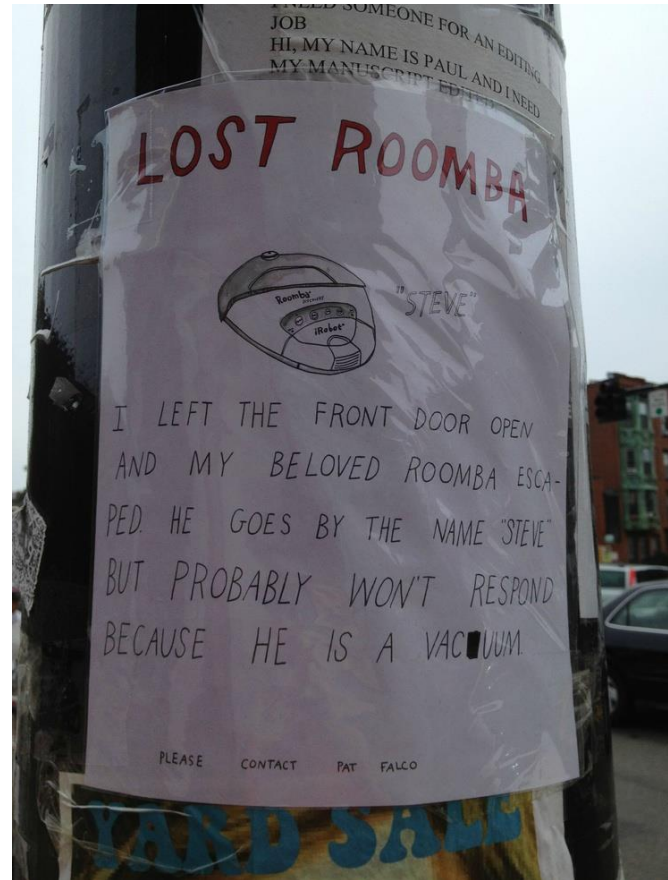 I NEED SOMEONE FOR AN EDITING
JOB
HI, MY NAME IS PAUL AND I NEED
MY MANUSCRIPT EDITED
LOST ROOMBA
Roomba
iRobot
"STEVE"
I LEFT THE FRONT DOOR OPEN
AND MY BELOVED ROOMBA ESCA-
PED. HE GOES BY THE NAME "STEVE"
BUT PROBABLY WON'T RESPOND
BECAUSE HE IS A VACUUM
PLEASE CONTACT PAT FALCO
YARD SALE